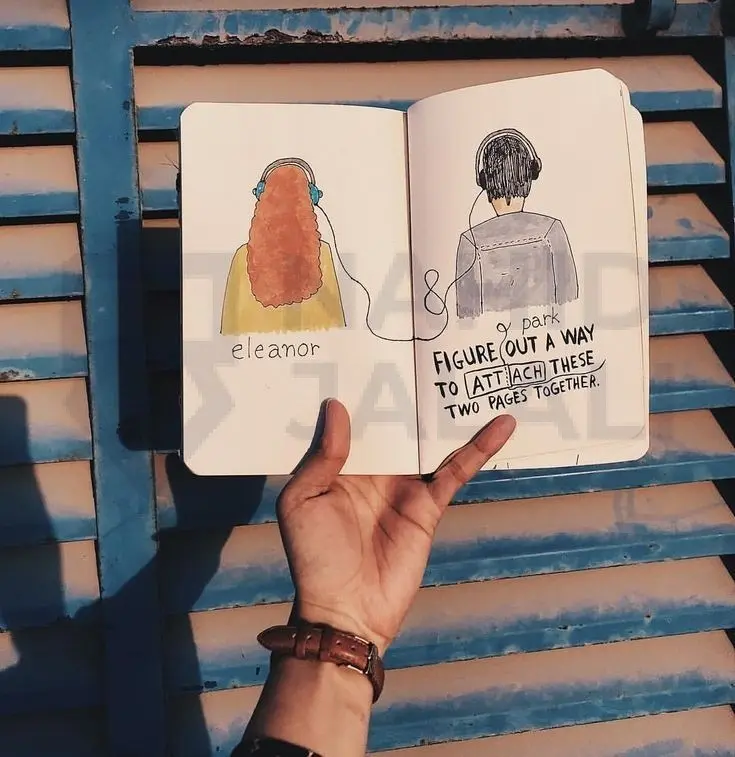 eleanor
&
park
FIGURE OUT A WAY
TO ATTACH THESE
TWO PAGES TOGETHER.
NAVID
JALALI